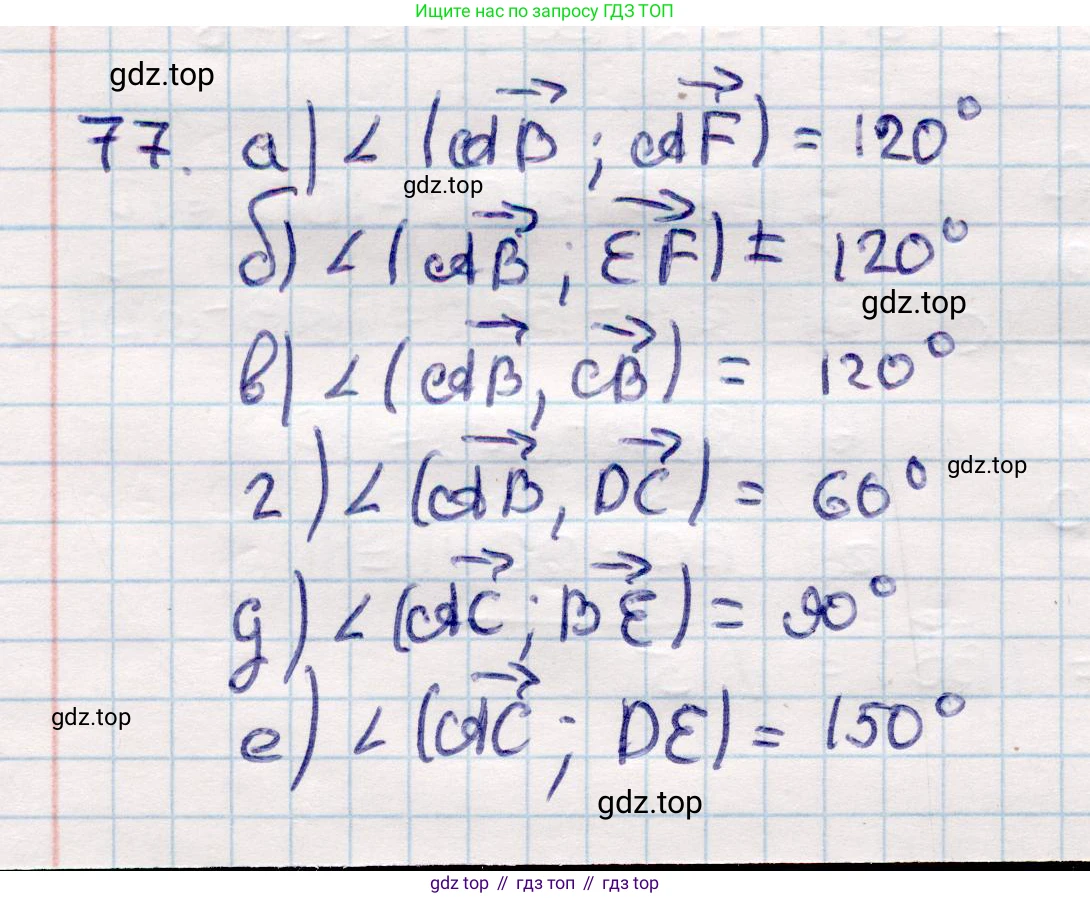 Ищите нас по запросу ГДЗ ТОП
gdz.top
77. а) ∠ (AB; AF) = 120°
gdz.top
б) ∠ (AB; EF) = 120°
gdz.top
в) ∠ (AB, CB) = 120°
г) ∠ (AB, DC) = 60°
gdz.top
д) ∠ (AC; BE) = 90°
gdz.top
е) ∠ (AC; DE) = 150°
gdz.top
gdz top // гдз топ // gdz top